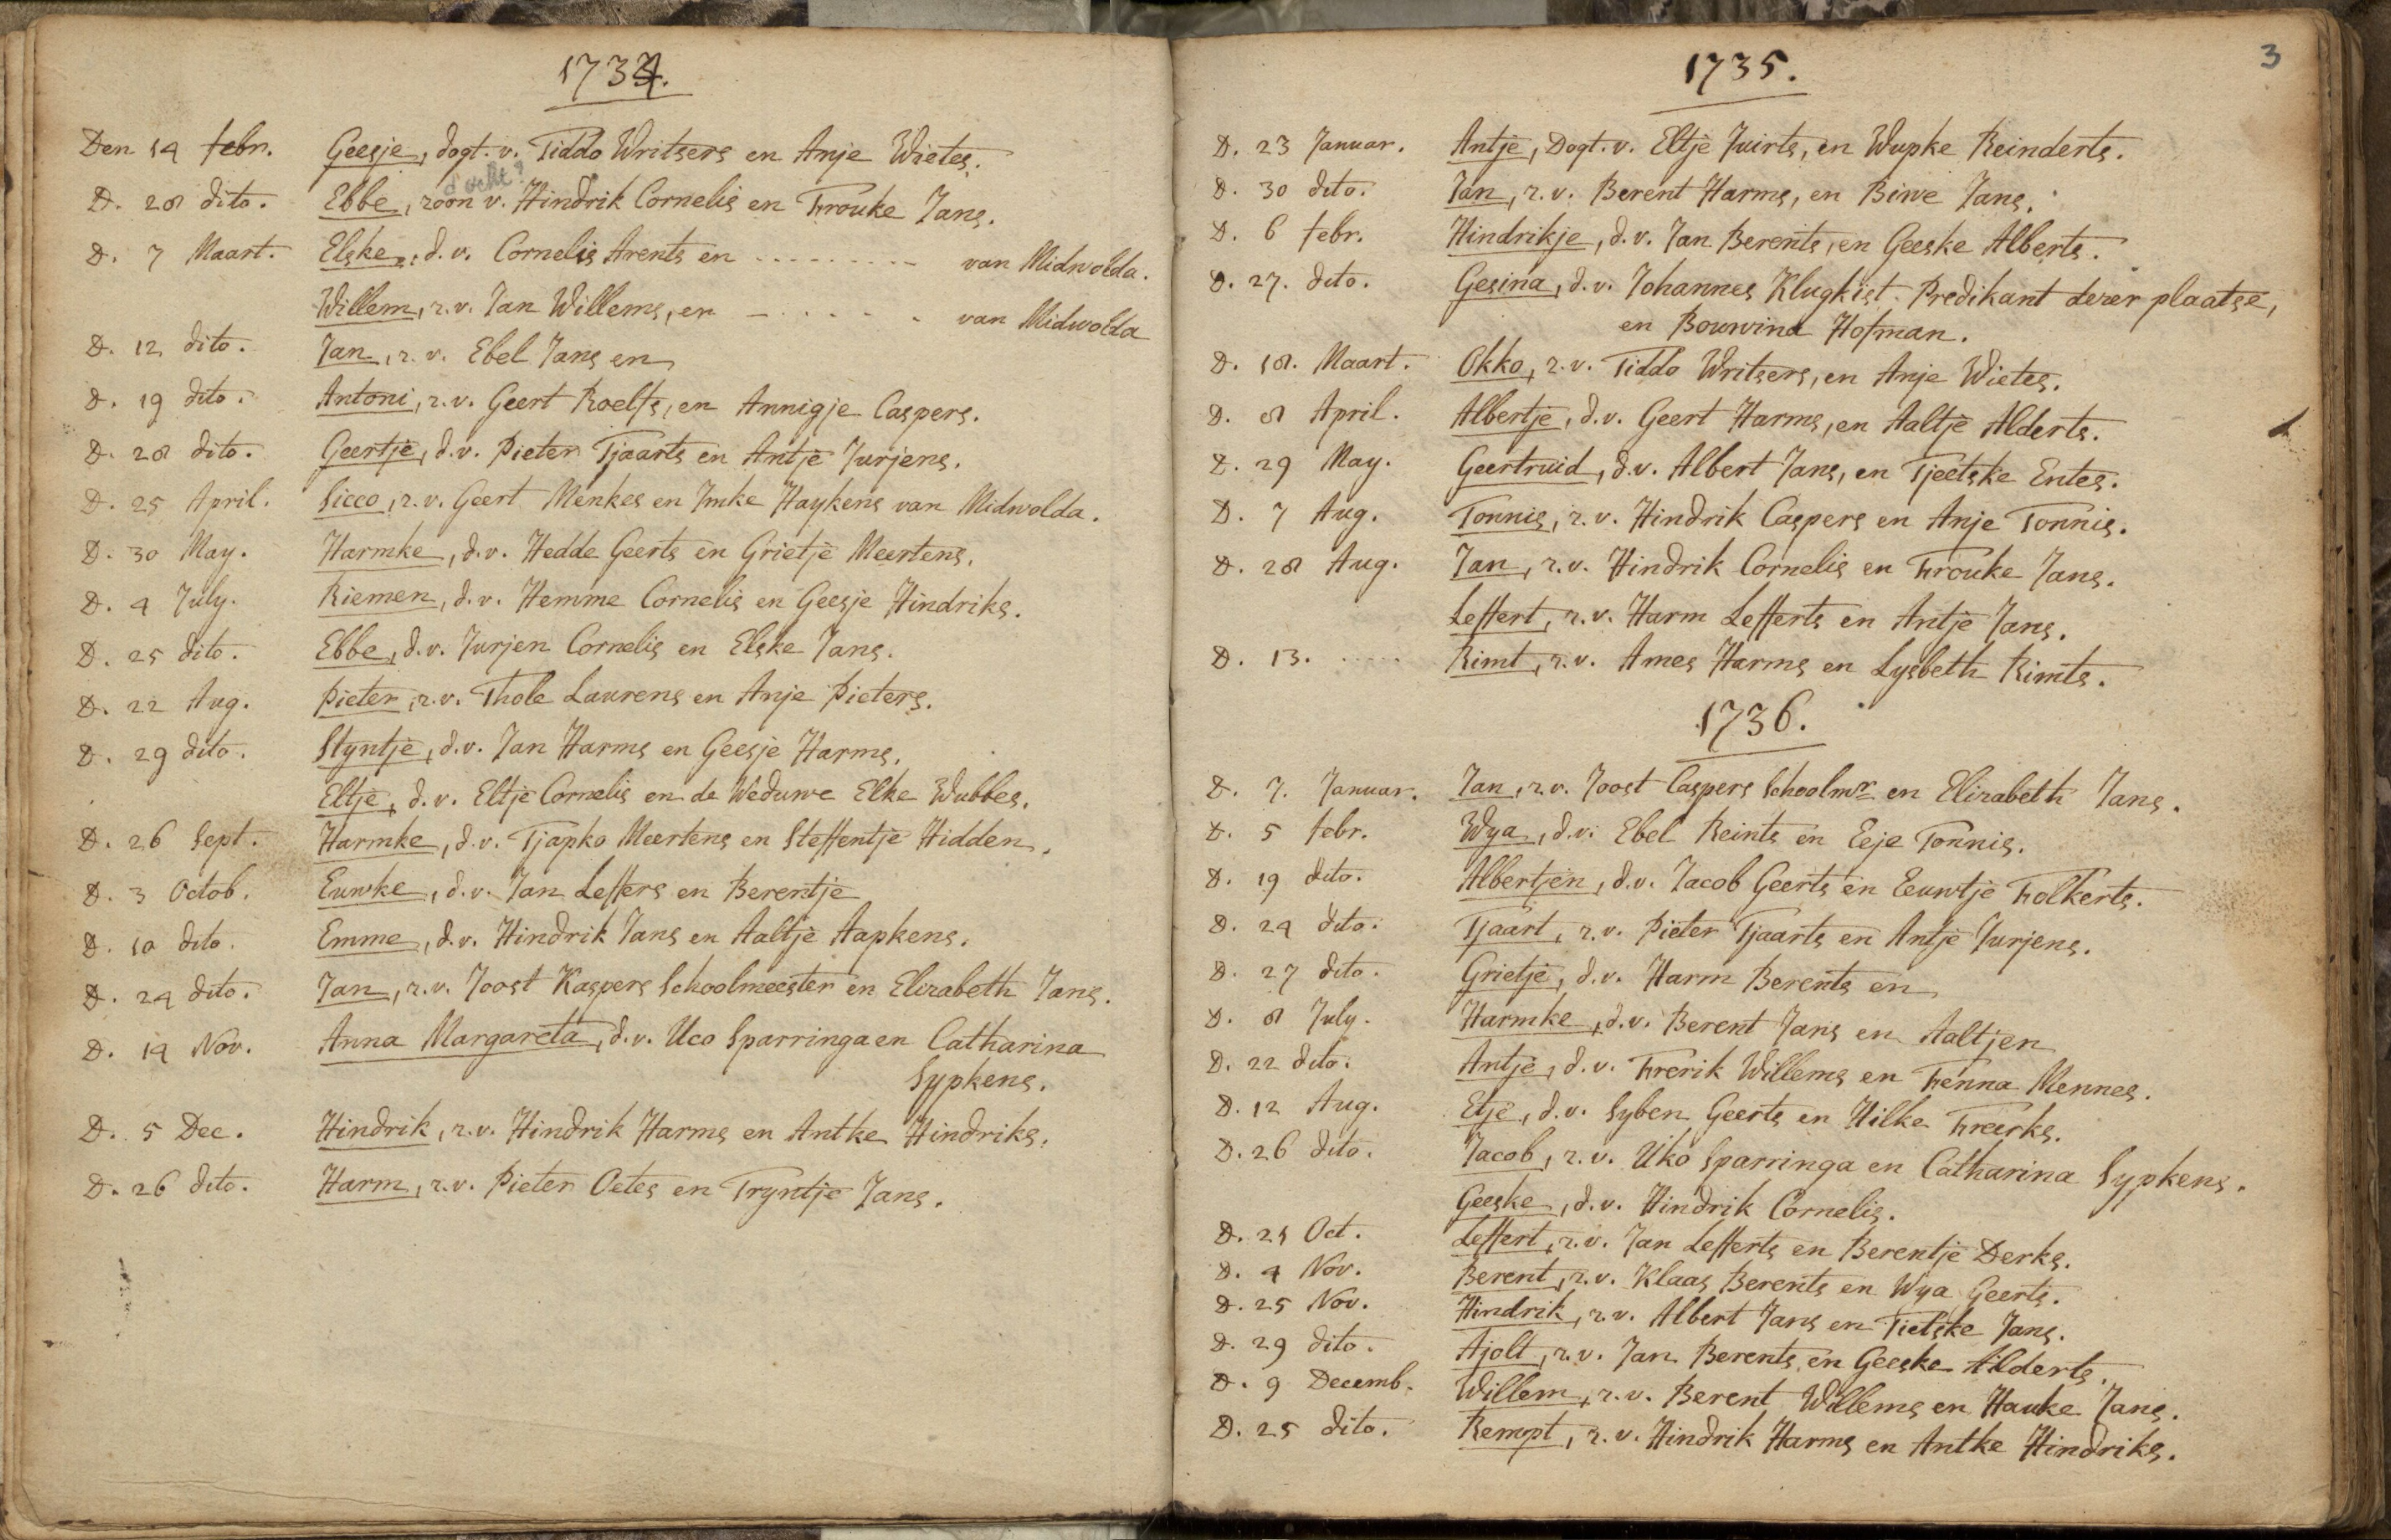 1734.
Den 14 febr. Geesje, dogt. v. Tiddo Writsers en Anje Wietes.
docht?
D. 28 dito. Ebbe, zoon v. Hindrik Cornelis en Frouke Jans.
D. 7 Maart. Elske, d. v. Cornelis Arents en ......... van Midwolda.
Willem, z. v. Jan Willems, en - . . . . . van Midwolda
D. 12 dito. Jan, z. v. Ebel Jans en
D. 19 dito. Antoni, z. v. Geert Roelfs, en Annigje Caspers.
D. 28 dito. Geertje, d. v. Pieter Tjaarts en Antje Jurjens.
D. 25 April. Sicco, z. v. Geert Menkes en Imke Haykens van Midwolda.
D. 30 May. Harmke, d. v. Hedde Geerts en Grietje Meertens.
D. 4 July. Riemen, d. v. Hemme Cornelis en Geesje Hindriks.
D. 25 dito. Ebbe, d. v. Jurjen Cornelis en Elske Jans.
D. 22 Aug. Pieter, z. v. Thole Laurens en Anje Pieters.
D. 29 dito. Styntje, d. v. Jan Harms en Geesje Harms.
Eltje, d. v. Eltje Cornelis en de Weduwe Elke Wubbes.
D. 26 Sept. Harmke, d. v. Tjapko Meertens en Steffentje Hidden.
D. 3 Octob. Euwke, d. v. Jan Leffers en Berentje
D. 10 dito. Emme, d. v. Hindrik Jans en Aaltje Aapkens.
D. 24 dito. Jan, z. v. Joost Kaspers Schoolmeester en Elizabeth Jans.
D. 14 Nov. Anna Margareta, d. v. Uco Sparringa en Catharina
Sypkens.
D. 5 Dec. Hindrik, z. v. Hindrik Harms en Antke Hindriks.
D. 26 dito. Harm, z. v. Pieter Oetes en Tryntje Jans.
3
1735.
D. 23 Januar. Antje, Dogt. v. Eltje Juirts, en Wupke Reinderts.
D. 30 dito. Jan, z. v. Berent Harms, en Biwe Jans.
D. 6 febr. Hindrikje, d. v. Jan Berents, en Geeske Alberts.
D. 27. dito. Gesina, d. v. Johannes Klugkist. Predikant dezer plaatse,
en Bouwina Hofman.
D. 18. Maart. Okko, z. v. Tiddo Writsers, en Anje Wietes.
D. 8 April. Albertje, d. v. Geert Harms, en Aaltje Alderts.
D. 29 May. Geertruid, d. v. Albert Jans, en Tjeetske Entes.
D. 7 Aug. Tonnis, z. v. Hindrik Caspers en Anje Tonnis.
D. 28 Aug. Jan, z. v. Hindrik Cornelis en Frouke Jans.
Leffert, z. v. Harm Lefferts en Antje Jans.
D. 13. ..... Rimt, z. v. Ames Harms en Lysbeth Rimts.
1736.
D. 7. Januar. Jan, z. v. Joost Caspers Schoolmr en Elizabeth Jans.
D. 5 febr. Wya, d. v. Ebel Reints en Eeje Tonnis.
D. 19 dito. Albertjen, d. v. Jacob Geerts en Eeuwtje Folkerts.
D. 24 dito. Tjaart, z. v. Pieter Tjaarts en Antje Jurjens.
D. 27 dito. Grietje, d. v. Harm Berents en
D. 8 July. Harmke, d. v. Berent Jans en Aaltjen
D. 22 dito. Antje, d. v. Frerik Willems en Fenna Mennes.
D. 12 Aug. Etje, d. v. Syben Geerts en Hilke Freerks.
D. 26 dito. Jacob, z. v. Uko Sparringa en Catharina Sypkens.
Geeske, d. v. Hindrik Cornelis.
D. 21 Oct. Leffert, z. v. Jan Lefferts en Berentje Derks.
D. 4 Nov. Berent, z. v. Klaas Berents en Wya Geerts.
D. 25 Nov. Hindrik, z. v. Albert Jans en Tietske Jans.
D. 29 dito. Ajolt, z. v. Jan Berents en Geeske Alderts.
D. 9 Decemb. Willem, z. v. Berent Willems en Hauke Jans.
D. 25 dito. Rempt, z. v. Hindrik Harms en Antke Hindriks.